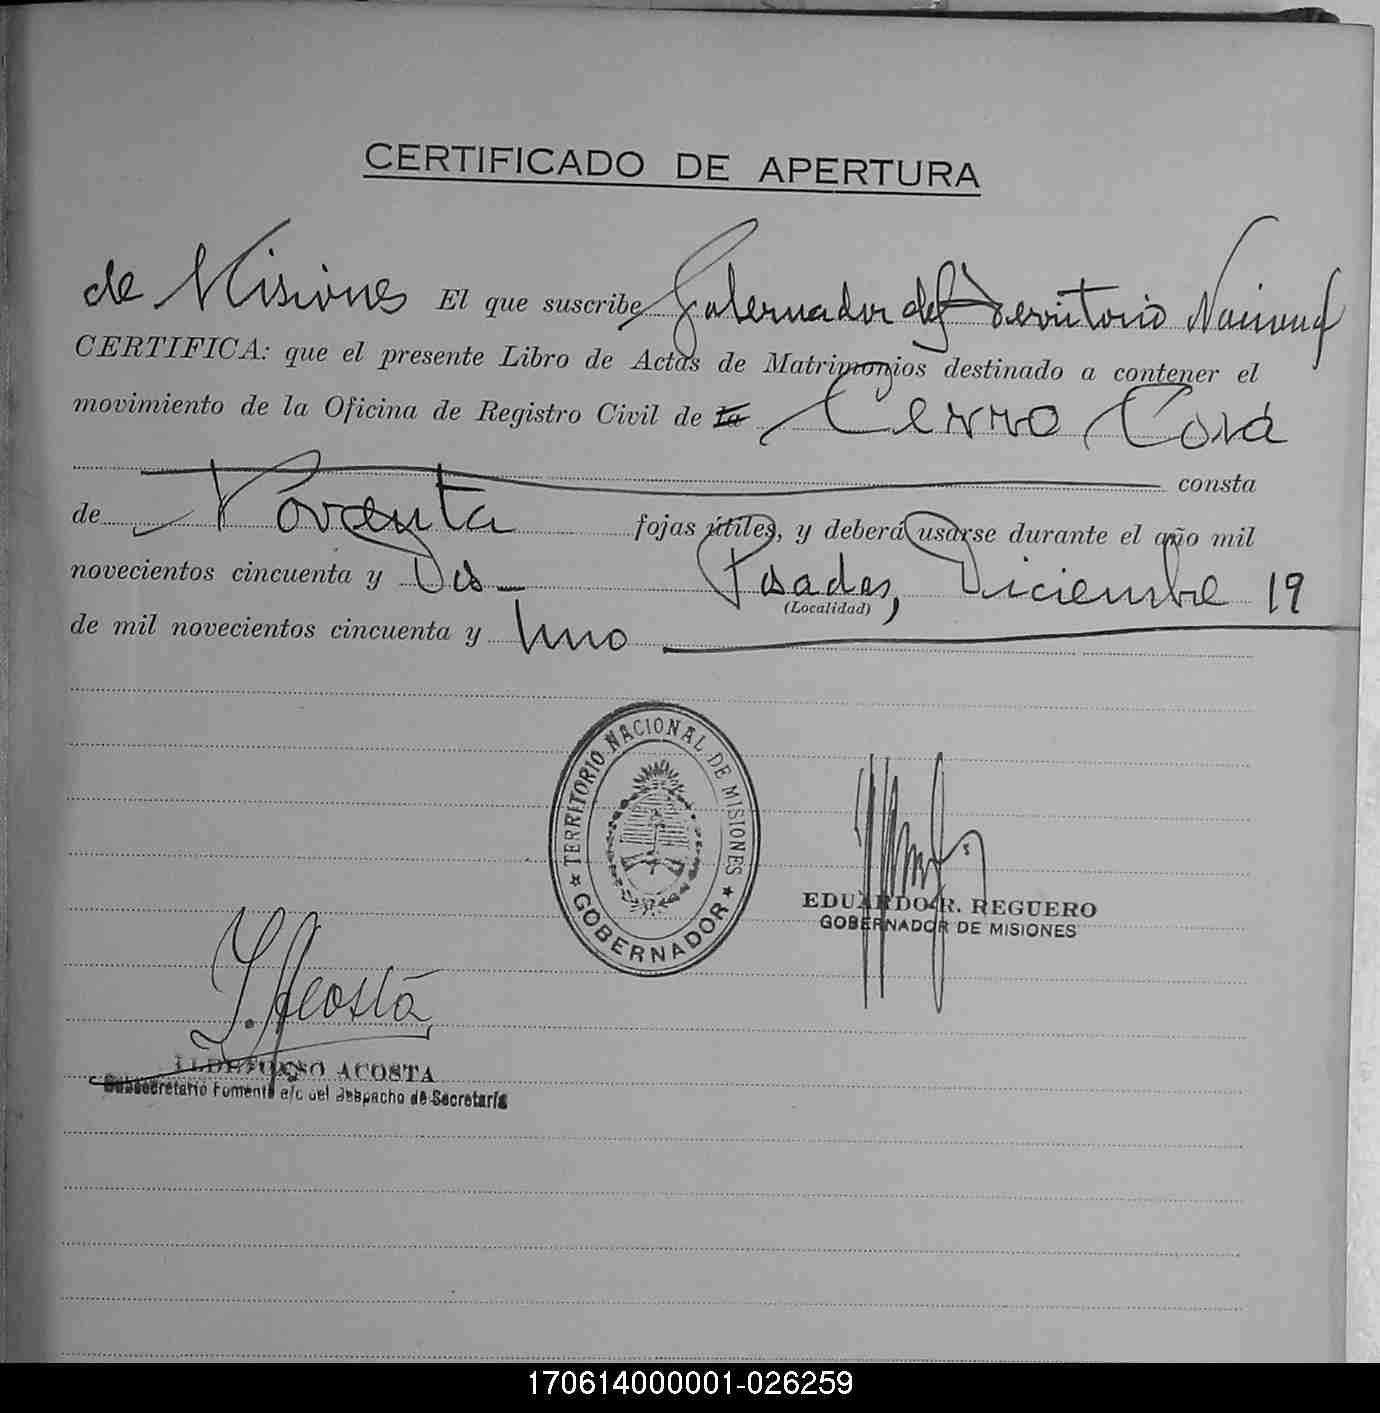 CERTIFICADO DE APERTURA
de Misiones El que suscribe Gobernador del Territorio Nacional
CERTIFICA: que el presente Libro de Actas de Matrimonios destinado a contener el
movimiento de la Oficina de Registro Civil de la Cerro Corá
consta
de Noventa fojas útiles, y deberá usarse durante el año mil
novecientos cincuenta y Dos Posadas, Diciembre 19
(Localidad)
de mil novecientos cincuenta y Uno
TERRITORIO NACIONAL DE MISIONES
GOBERNADOR
EDUARDO R. REGUERO
GOBERNADOR DE MISIONES
I. Acosta
ILDEFONSO ACOSTA
Subsecretario Fomento e/c del Despacho de Secretaría
170614000001-026259